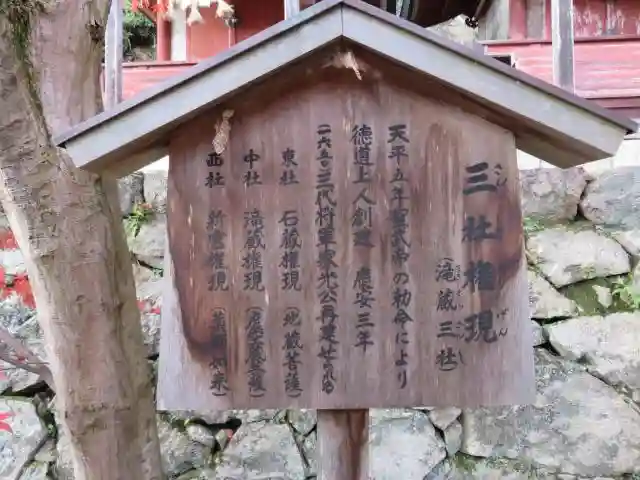 三社権現
(滝蔵三社)
天平五年聖武帝の勅命により
徳道上人創建 慶安三年
一六五〇三代将軍家光公再建せらる
東社 石蔵権現(地蔵菩薩)
中社 滝蔵権現(虚空蔵菩薩)
西社 新宮権現(薬師如来)